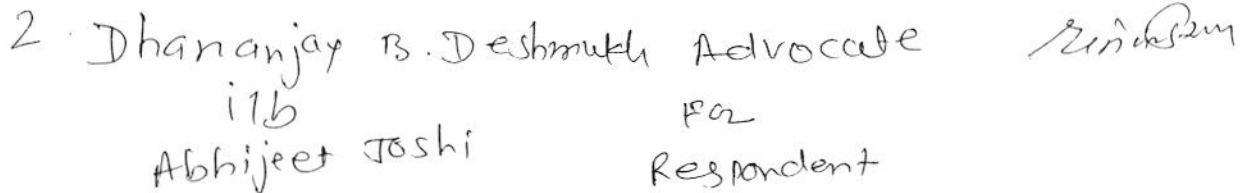 2. Dhananjay B. Deshmukh Advocate
i/b For
Abhijeet Joshi Respondent